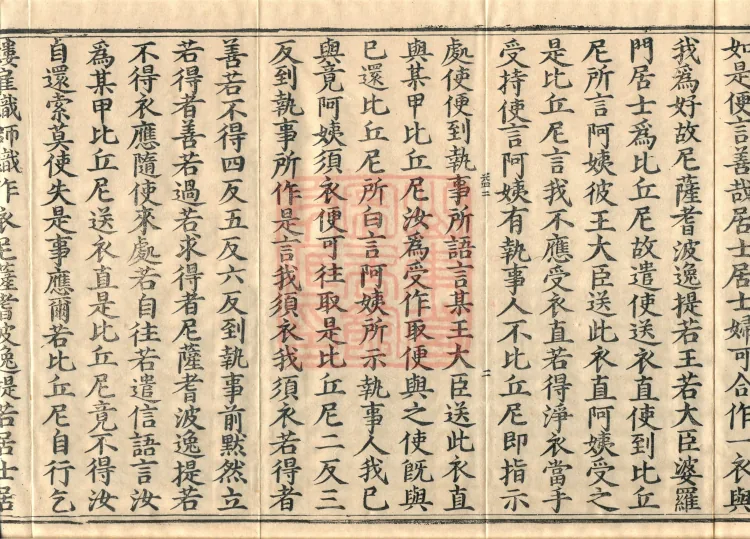 如是便言善哉居士居士婦可合作一衣與
我爲好故尼薩耆波逸提若王若大臣婆羅
門居士爲比丘尼故遣使送衣直使到比丘
尼所言阿姨彼王大臣送此衣直阿姨受之
是比丘尼言我不應受衣直若得淨衣當手
受持使言阿姨有執事人不比丘尼即指示
處使便到執事所語言某王大臣送此衣直
與某甲比丘尼汝爲受作取便與之使旣與
已還比丘尼所白言阿姨所示執事人我已
與竟阿姨須衣便可往取是比丘尼二反三
反到執事所作是言我須衣我須衣若得者
善若不得四反五反六反到執事前默然立
若得者善若過若求得者尼薩耆波逸提若
不得衣應隨使來處若自往若遣信語言汝
爲某甲比丘尼送衣直是比丘尼竟不得汝
自還索莫使失是事應爾若比丘尼自行乞
縷雇織師織作衣尼薩耆波逸提若居士居